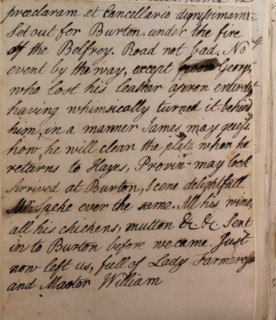 præclaram et Cancellario dignissimam
Set out for Burton, under the fire
off the Belfrey. Road not bad. No
event by the way, except George
who lost his leather apron entirely
having whimsically turned it behind
him, in a manner James may guess
how he will clean the plate when he
returns to Hayes, Provin may look
Arrived at Burton, Scene delightfull
Speke ever the same. All his wine
all his chickens, mutton &c &c sent
in to Burton before we came. Just
now left us, full of Lady Farmery
and Master William